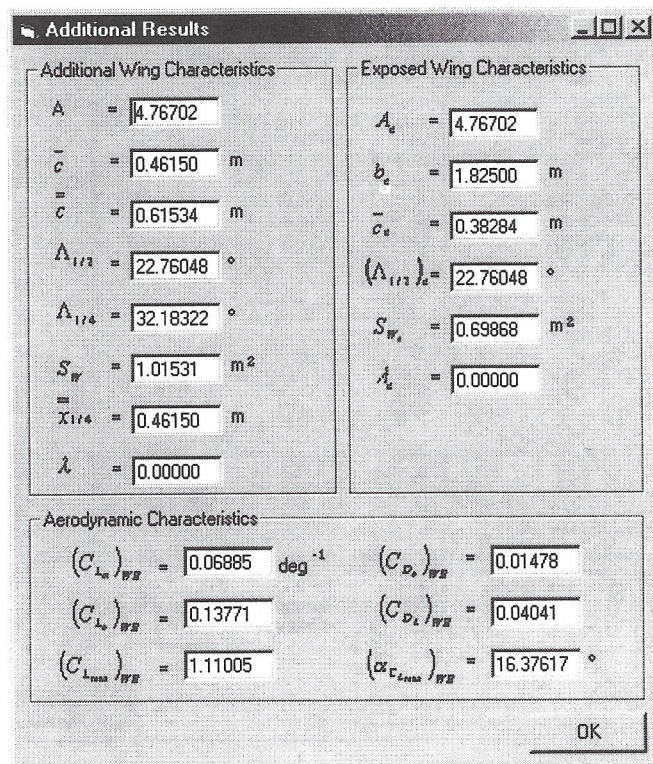 Additional Results
Additional Wing Characteristics
A = 4.76702
c̄ = 0.46150 m
c̿ = 0.61534 m
Λ1/2 = 22.76048 °
Λ1/4 = 32.18322 °
S_W = 1.01531 m²
x̿1/4 = 0.46150 m
λ = 0.00000
Exposed Wing Characteristics
A_e = 4.76702
b_e = 1.82500 m
c̄_e = 0.38284 m
(Λ1/2)_e = 22.76048 °
S_We = 0.69868 m²
λ_e = 0.00000
Aerodynamic Characteristics
(C_Lα)_WB = 0.06885 deg⁻¹
(C_L₀)_WB = 0.13771
(C_Lmax)_WB = 1.11005
(C_D₀)_WB = 0.01478
(C_D_L)_WB = 0.04041
(α_C_Lmax)_WB = 16.37617 °
OK